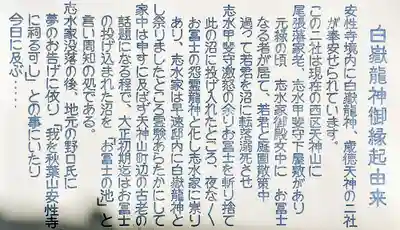 白嶽龍神御縁起由来
安性寺境内に白嶽龍神、歳徳天神の二社
が奉安せられています。
この二社は現在の西区天神山に
尾張藩家老、志水甲斐守下屋敷があり
元禄の頃、志水家御殿女中に お冨士
なる者が居て、若君と庭園散策中
過って若君を沼に転落溺死させ
志水甲斐守激怒の余りお冨士を斬り捨て
此の沼に投げ入れたところ、夜な〱
お冨士の怨霊龍神と化し志水家に祟り
あり、志水家は早速邸内に白嶽龍神と
し祭りましたところ霊験あらたかにして
家中は申すに及ばず天神山町辺の古老の
話題になる程で、大正初期迄はお冨士
の投げ込まれた沼を お冨士の池」と
言い周知の処である。
志水家没落の後、地元の野口氏に
夢のお告げに依り「我を秋葉山安性寺
に祠る可し」との事にいたり
今日に及ぶ‥‥